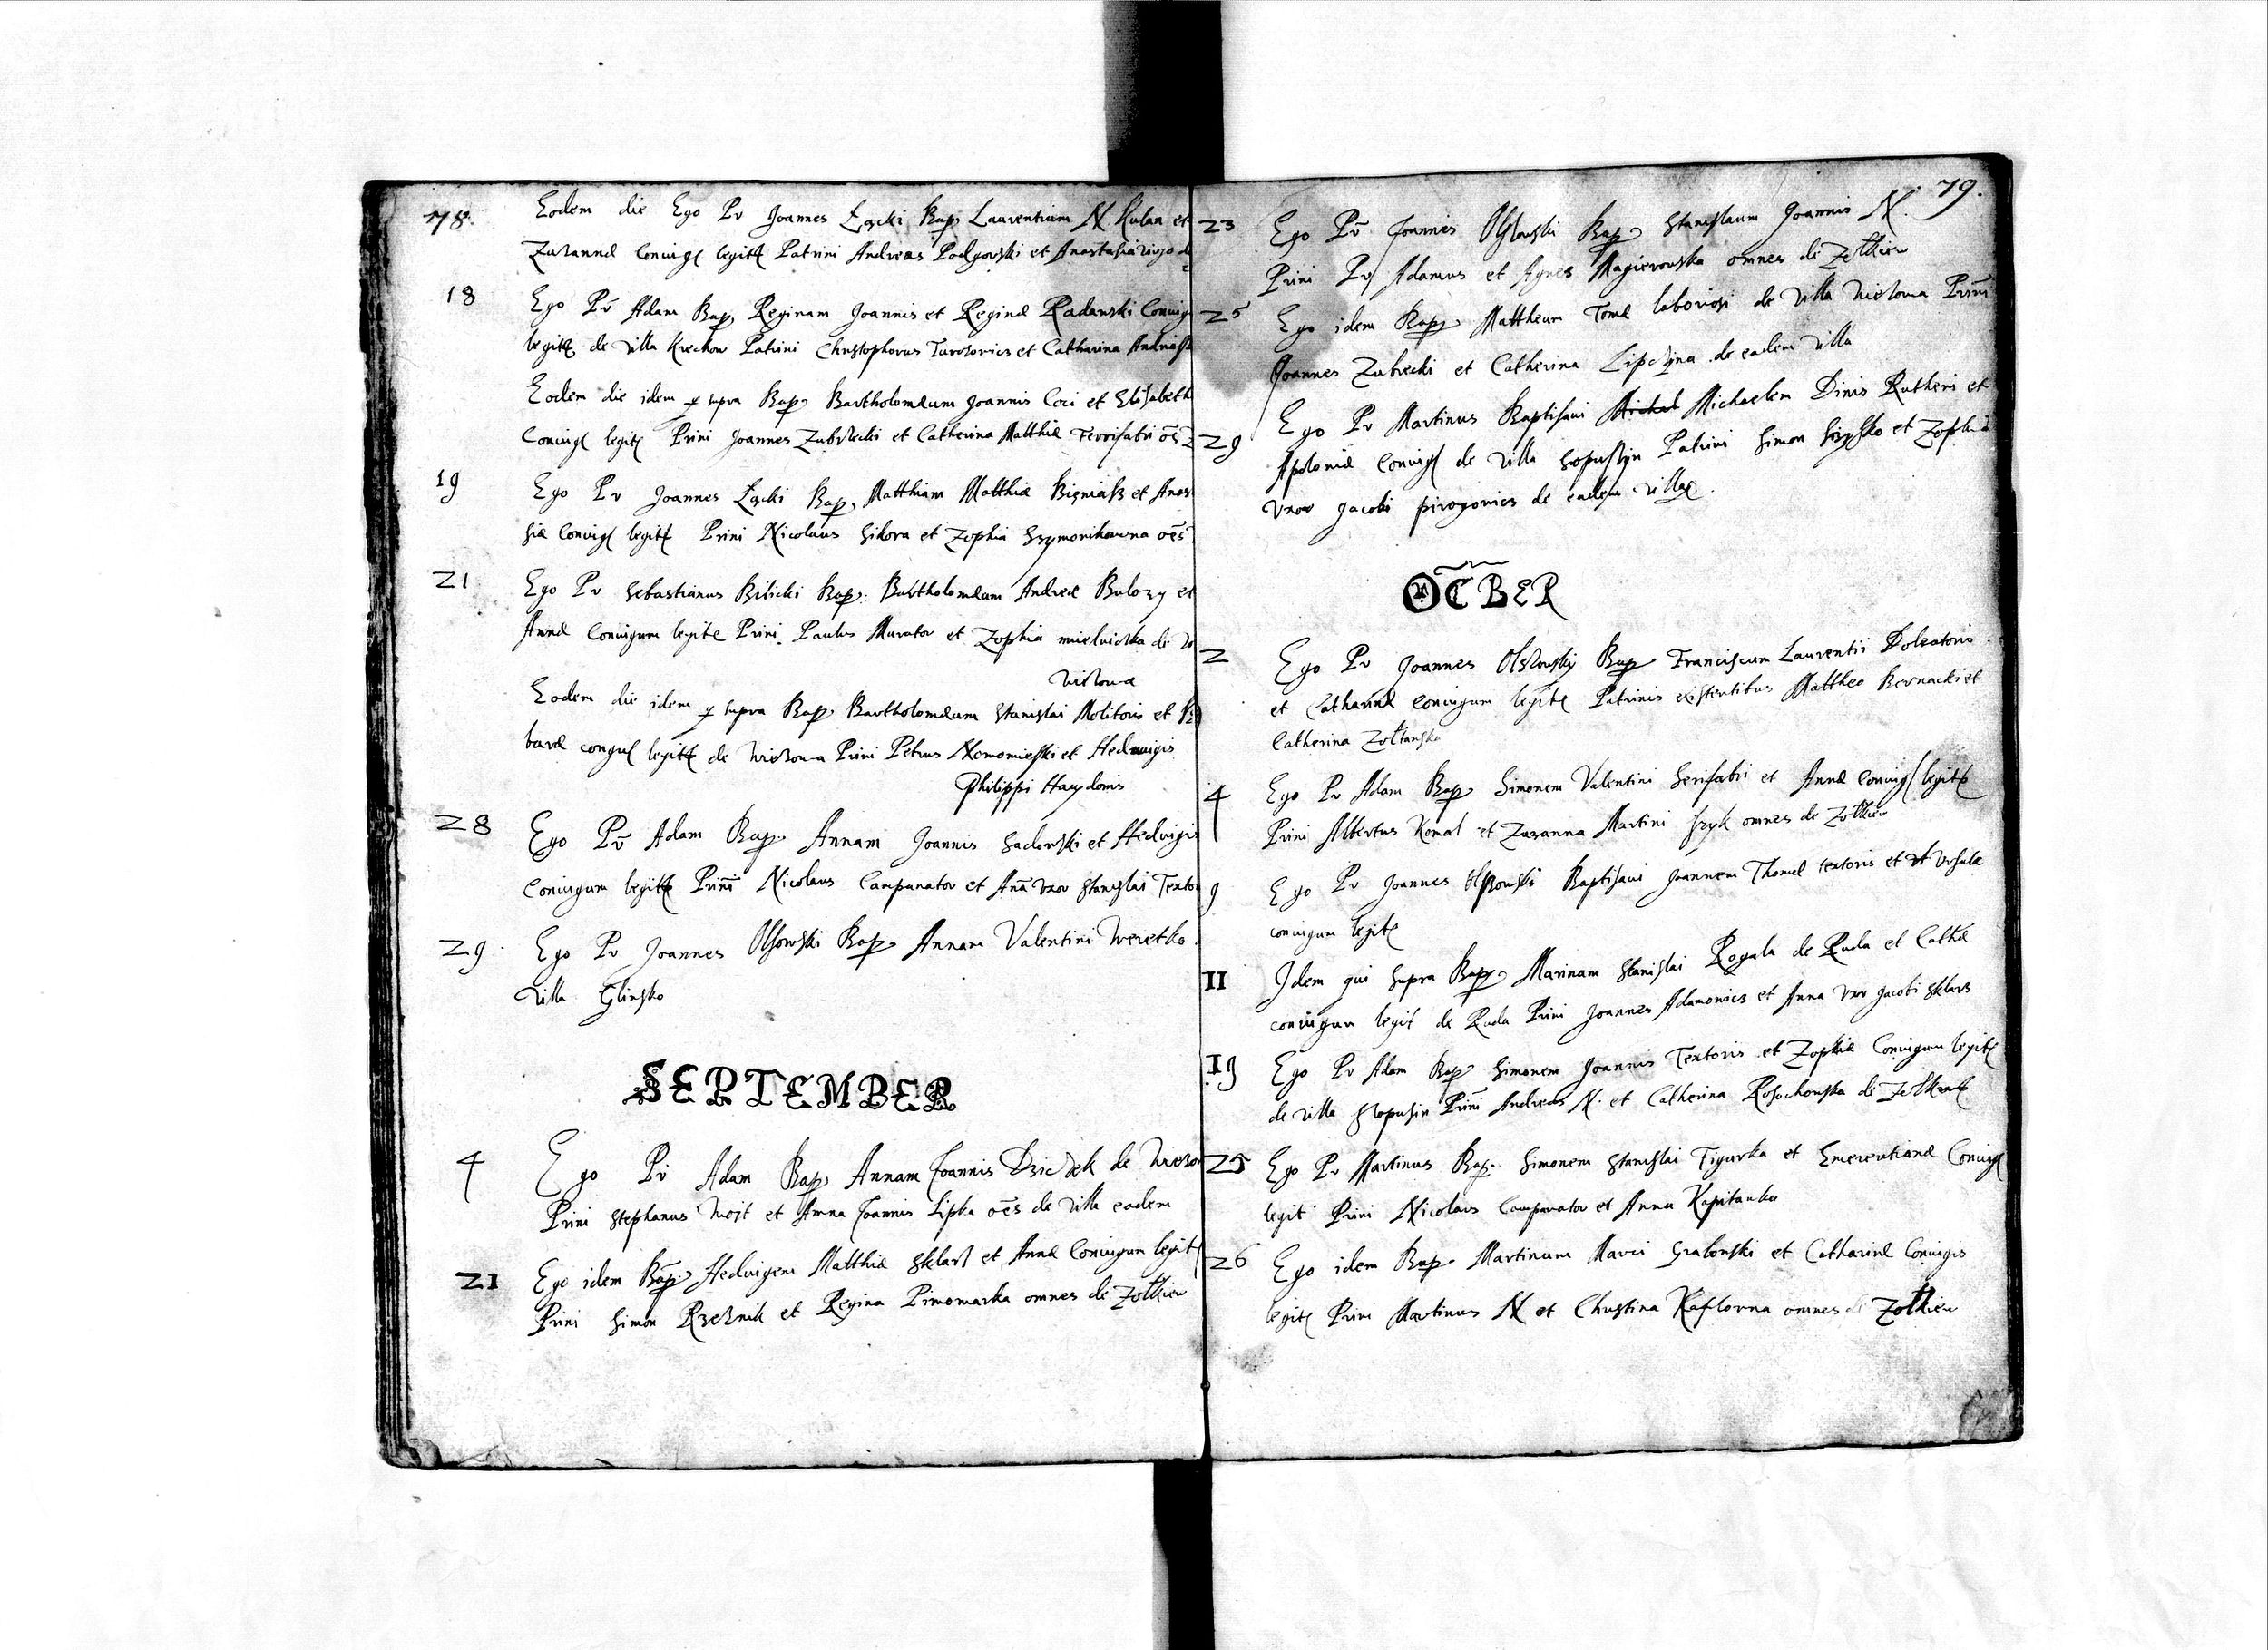 78.
Eodem die Ego Pr Joannes Łącki Bap. Laurentium N. Kulan et
Zuzannæ Coniug legitt Patrini Andreas Podgorski et Anastasia
18 Ego Pr Adam Bap. Reginam Joannis et Reginæ Radanski Coniug
legitt de villa Krechow Patrini Christophorus Turosovics et Catharina
Eodem die idem supra Bap. Bartholomæum Joannis Coci et Elisabeth
Coniug legitt Prini Joannes Zubrzecki et Catherina Matthiæ Ferrifabri oēs
19 Ego Pr Joannes Łącki Bap. Matthiam Matthiæ et Anas
siæ Coniug legitt Prini Nicolaus Sikora et Zophia Szymonikowna oēs
21 Ego Pr Sebastianus Bilicki Bap. Bartholomæum Andreæ et
Annæ Coniugum legitt Prini Paulus Murator et Zophia mielniczka de
Eodem die idem supra Bap. Bartholomæum Stanislai Molitoris et
baræ congu legitt de Prini Petrus et Hedwigis
Philippi Haydonis
28 Ego Pr Adam Bap. Annam Joannis Sadowski et Hedvigis
Coniugum legitt Prini Nicolaus Campanator et Anā vxor Stanislai Texto
29 Ego Pr Joannes Olszowski Bap. Annam Valentini Weretko
villa Glinsko
SEPTEMBER
4 Ego Pr Adam Bap. Annam Joannis de
Prini Stephanus Wojt et Anna Joannis Lipka oēs de villa eadem
21 Ego idem Bap. Hedvigem Matthiæ Sklarz et Annæ Coniugum legitt
Prini Simon Rzeznik et Regina Piwowarka omnes de Zołkiew
79.
23 Ego Pr Joannes Olszowski Bap. Stanislaum Joannis N.
Prini Pr Adamus et Agnes Magierowska omnes de Zołkiew
25 Ego idem Bap. Mattheum Tomæ laboriosi de villa Prini
Joannes Zubrecki et Catherina Lipczina de eadem villa
29 Ego Pr Martinus Baptisaui Michal Michaelem Dinis Rutheni et
Apoloniæ Coniug de villa Patrini Simon et Zophia
vxor Jacobi pirogovics de eadem villa.
OCBER
2 Ego Pr Joannes Olszowskij Bap. Franciscum Laurentii Doleatoris
et Catharinæ Coniugum legitt Patrinis existentibus Mattheo Bernacki et
Catherina Zołtanska
4 Ego Pr Adam Bap. Simonem Valentini Serifabri et Annæ Coniug legitt
Prini Albertus Kowal et Zuzanna Martini omnes de Zołkiew
9 Ego Pr Joannes Olszowski Baptisaui Joannem Thomæ textoris et Vrsulæ
coniugum legitt
11 Idem qui supra Bap. Marinam Stanislai Rogala de Ruda et Cathæ
coniugum legit de Ruda Prini Joannes Adamovics et Anna vxor Jacobi Sklarz
19 Ego Pr Adam Bap. Simonem Joannis Textoris et Zophiæ Coniugum legitt
de villa Prini Andreas N. et Catherina Rosochowska de
25 Ego Pr Martinus Bap. Simonem Stanislai Figurka et Emerentianæ Coniug
legit Prini Nicolaus Campanator et Anna Kapitanka
26 Ego idem Bap. Martinum Marci Grabowski et Catharinæ Coniugis
legitt Prini Martinus N et Christina omnes de Zołkiew